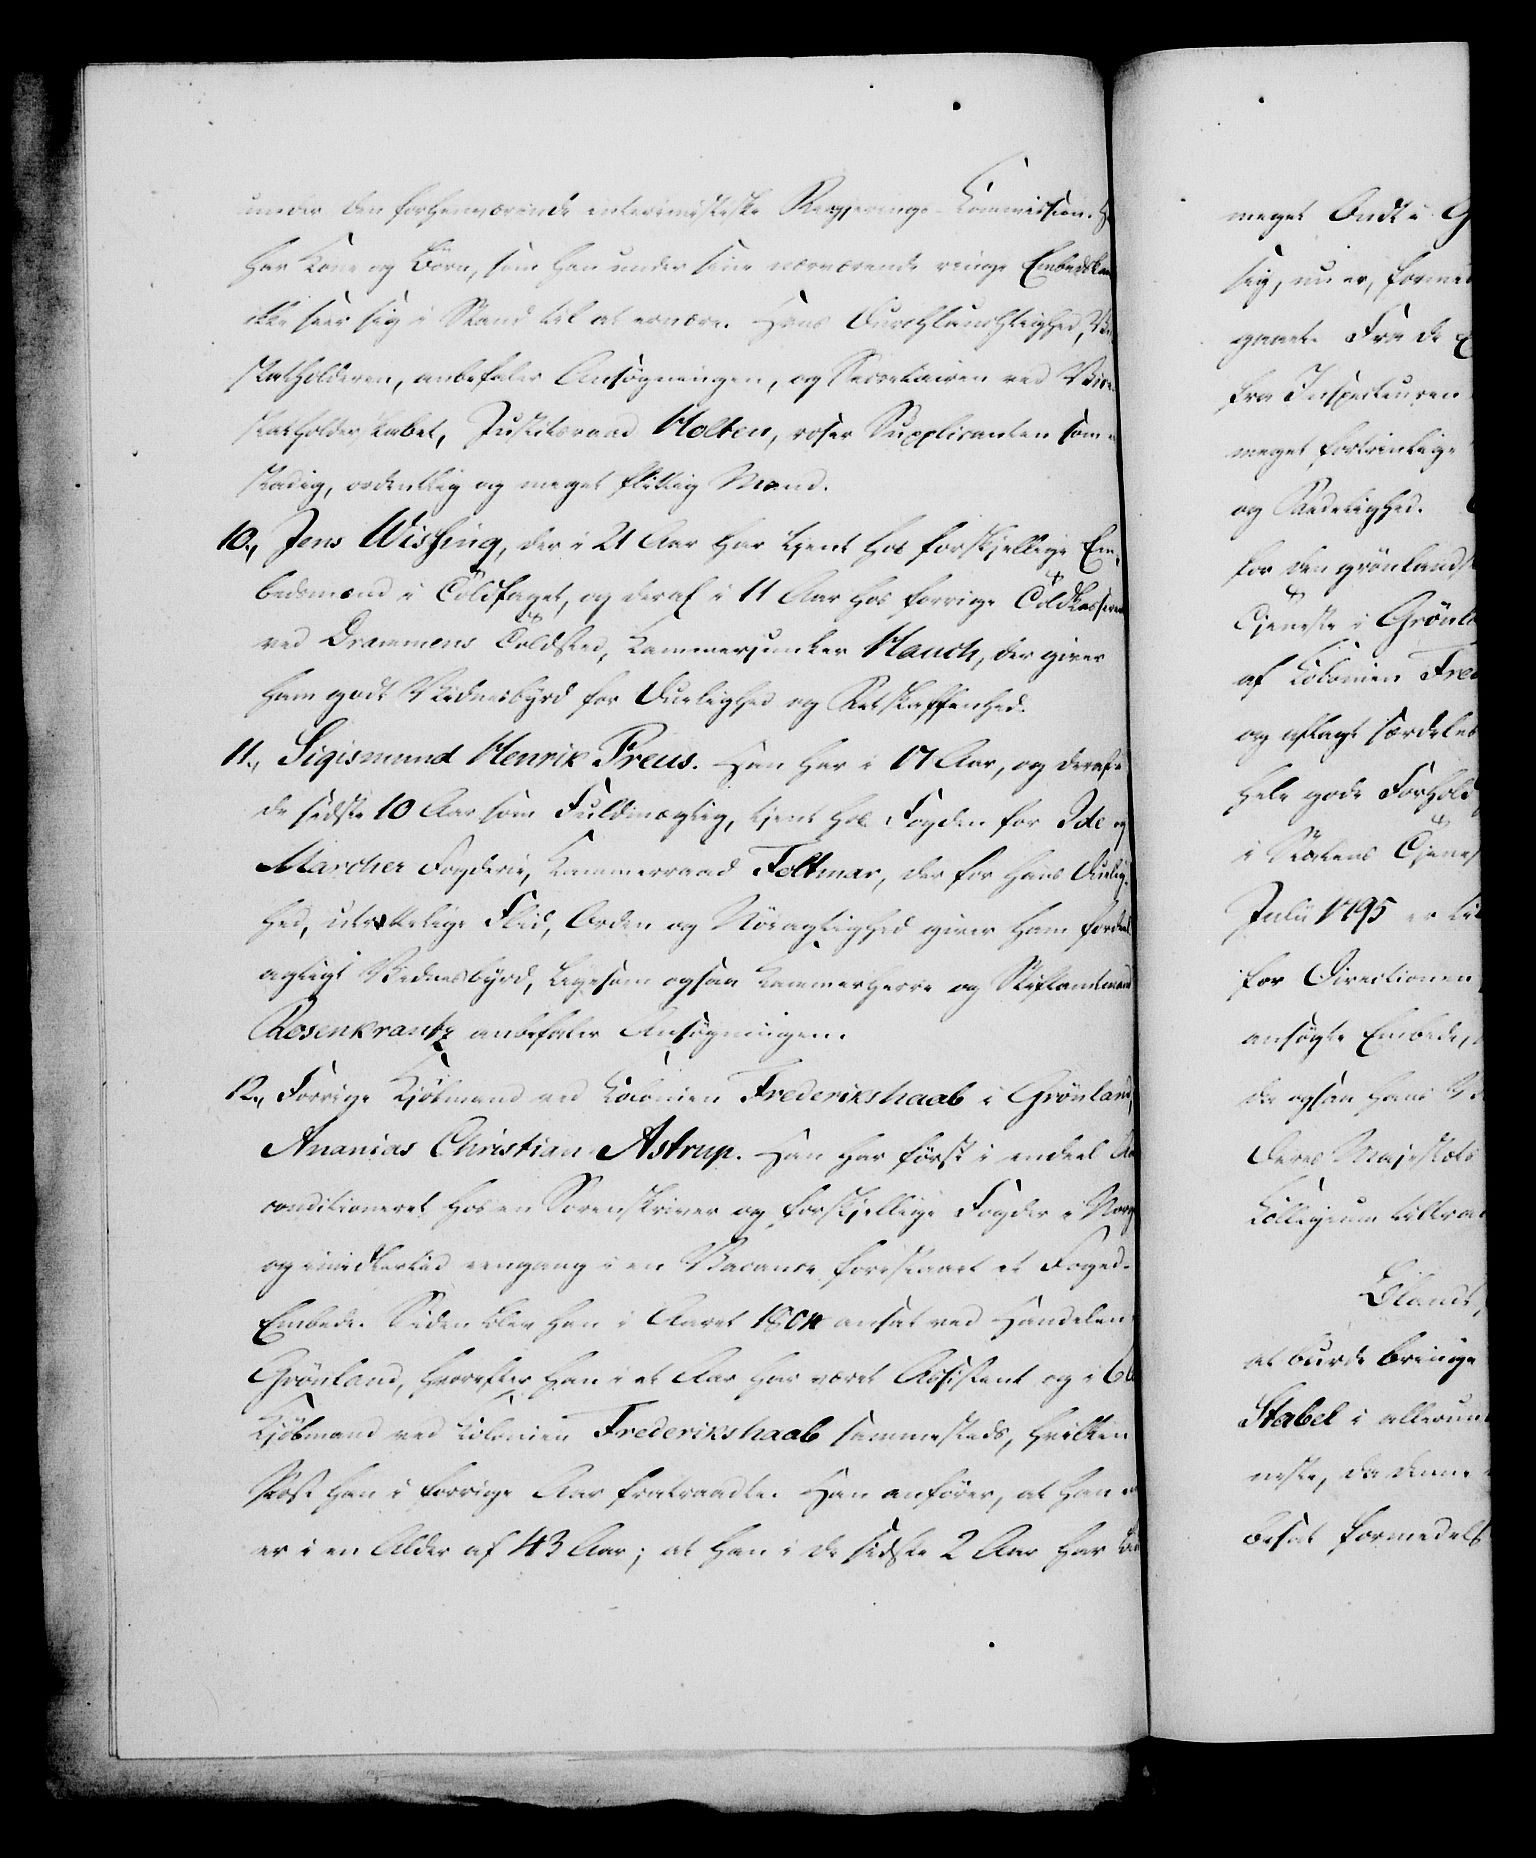 under den forhenværende interimistiske Regjerings-Commission. H
har Kone og Börn, som han under sine nærværende ringe
ikke seer sig i Stand til at ernære. Hans Durchlauchtighed,
statholderen, anbefaler Ansögningen, og Secretairen ved Vice
statholderskabet, Justitsraad Holten, roser Supplicanten som
stadig, ordentlig og meget flittig Mand.
10., Jens Wissing, der i 21 Aar har tjent hos forskjellige Em-
bedsmænd i Toldfaget, og deraf i 11 Aar hos forrige Toldkasserer
ved Drammens Toldsted, Kammerjunker Hauch, der giver
ham godt Vidnesbyrd for Duelighed og Retskaffenhed.
11., Sigismund Henrik Preus. Han har i 17 Aar, og deraf i
de sidste 10 Aar som Fuldmægtig, tjent hos Fogden for Ide og
Marcher Fogderie, Kammerraad Feltmar, der for hans Duelig-
hed, utrættelige Flid, Orden og Nöiagtighed giver ham fordeel
agtigt Vidnesbyrd, ligesom ogsaa Kammerherre og Stiftamtmand
Rosenkrantz anbefaler Ansögningen.
12., Forrige Kjöbmand ved Colonien Frederikshaab i Grönland,
Ananias Christian Astrup. Han har först i endeel Aa
conditioneret hos en Sorenskriver og forskjellige Fogder i Norg
og imidlertid eengang i en Vacance forestaaet et Foged-
Embede. Siden blev han i Aaret 1804 ansat ved Handelen
Grönland, hvorefter han i et Aar har været Assistent og i 6
Kjöbmand ved Colonien Frederikshaab sammesteds, hvilken
Post han i forrige Aar fratraadte. Han anförer, at han
er i en Alder af 43 Aar; at han i de sidste 2 Aar har
meget Ondt i G
sig, nu er, formed
gaaet. Fra de
fra Inspecteuren
meget fortrinlige
og Redelighed.
for den grönlands
Tjeneste i Grönl
af Colonien Fred
og aflagt særdeles
hele gode Forhold
i Statens Tjenes
Julii 1795 er til
for Directionen
ansögte Embede,
da ogsaa Hans
Deres Majestæts
Collegium tiltra
Blandt
at burde bringe
Stabel i allerun
neste, da denne
besat formedelst